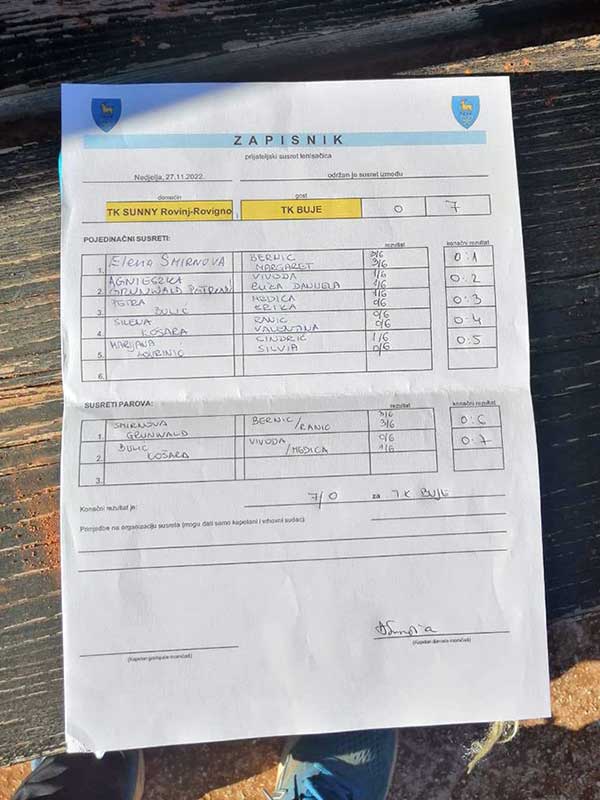 ZAPISNIK
prijateljski susret tenisačica
Nedjelja, 27.11.2022. održan je susret između
domaćin gost
TK SUNNY Rovinj-Rovigno TK BUJE 0 7
POJEDINAČNI SUSRETI: rezultat konačni rezultat
1. Elena SMIRNOVA BERNIC MARGARET 3/6 0:1
AGNIESZKA VIVODA 1/6
2. GRUNWALD ELIZA DANIJELA 1/6 0:2
PETRA MEDICA 1/6
3. BULIĆ ERIKA 0/6 0:3
SILENA RANIC 0/6
4. KOŠARA VALENTINA 0/6 0:4
MARIJANA SINDRIĆ 1/6
5. SILVIA 0/6 0:5
6.
SUSRETI PAROVA: rezultat konačni rezultat
SMIRNOVA BERNIC 3/6
1. GRUNWALD /RANIC 3/6 0:6
BULIĆ VIVODA 0/6
2. KOŠARA /MEDICA 1/6 0:7
3.
Konačni rezultat je: 7/0 za TK BUJE
Primjedbe na organizaciju susreta (mogu dati samo kapetani i vrhovni sudac):